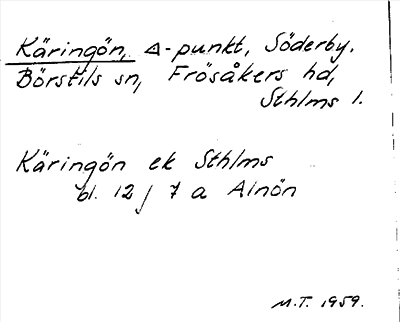 Käringön, △-punkt, Söderby.
Börstils sn, Frösåkers hd,
Sthlms l.
Käringön ek Sthlms
bl. 12 j 7 a Alnön
M.T. 1959.